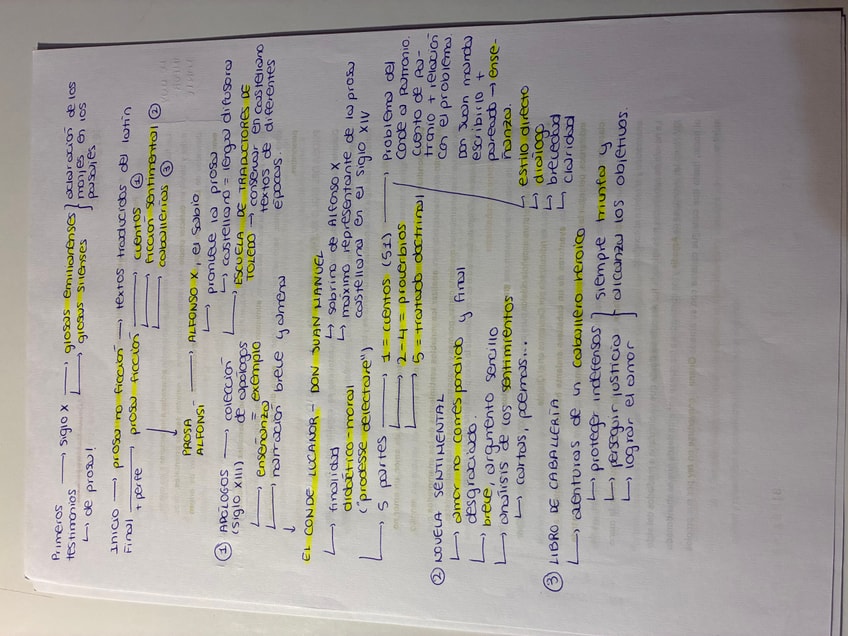 Primeros testimonios → siglo X → glosas emilianenses } aclaración de los
↳ de prosa! ↳ glosas silenses } monjes en los pasajes
INICIO → prosa no ficción → textos traducidos del latín
Final → prosa ficción → cuentos ①
+ parte → ficción sentimental ②
→ caballerías ③
PROSA ALFONSÍ → ALFONSO X, el sabio
↳ promueve la prosa
↳ castellano = lengua difusora
→ ESCUELA DE TRADUCTORES DE TOLEDO → conservar en castellano
textos de diferentes épocas.
① APÓLOGOS (siglo XIII) → colección de apólogos
↳ enseñanza = exemplo
↳ narración breve y amena
EL CONDE LUCANOR - DON JUAN MANUEL
↳ sobrino de Alfonso X
↳ máximo representante de la prosa
castellana en el siglo XIV
↳ finalidad
didáctico-moral
("prodesse delectare")
↳ 5 partes → 1 = cuentos (51) → problema del
Conde a Patronio.
cuento de Patronio + relación
con el problema.
Don Juan manda
escribirlo +
pareado → enseñanza.
→ 2-4 = proverbios
→ 5 = tratado doctrinal
↳ estilo directo
↳ diálogo
↳ brevedad
↳ claridad
② NOVELA SENTIMENTAL
↳ amor no correspondido y final
desgraciado.
↳ breve, argumento sencillo
↳ análisis de los sentimientos
↳ cartas, poemas...
③ LIBRO DE CABALLERÍA
↳ aventuras de un caballero heroico
↳ proteger indefensos } siempre triunfa y
↳ perseguir justicia } alcanza los objetivos.
↳ lograr el amor